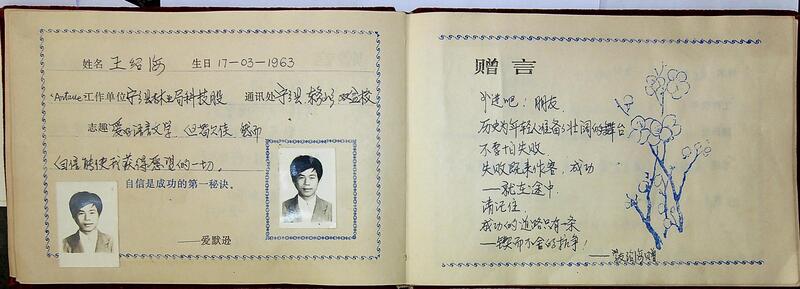 姓名 王绍海 生日 17-03-1963
工作单位 宁县林业局科技股 通讯处 宁县
志趣 爱好语言文学,但皆欠佳,然而
自信能使我获得愿望的一切。
自信是成功的第一秘诀。
——爱默逊
赠言
斗进吧!朋友,
历史为年轻人准备了壮阔的舞台
不要怕失败
失败既来作客,成功
——就在途中
请记住,
成功的道路只有一条
——锲而不舍的抗争!